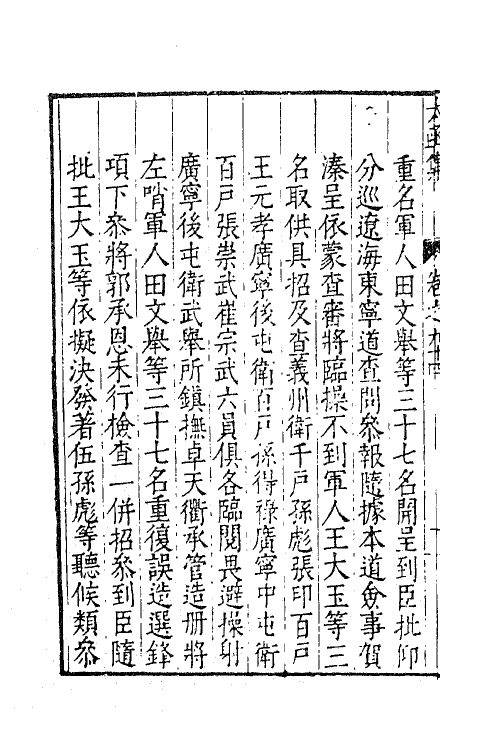 太函集 卷之九十四
重名軍人田文舉等三十七名開呈到臣批仰
分巡遼海東寧道查問叅報隨據本道僉事賀
溱呈依蒙查審將臨操不到軍人王大玉等三
名取供具招及查義州衛千戶孫彪張印百戶
王元孝廣寧後屯衛百戶孫得祿廣寧中屯衛
百戶張崇武崔宗武六員俱各臨閱畏避操射
廣寧後屯衛武舉所鎮撫卓天衢承管造册將
左哨軍人田文舉等三十七名重復誤造選鋒
項下叅將郭承恩未行檢查一併招叅到臣隨
批王大玉等依擬決發着伍孫彪等聽候類叅